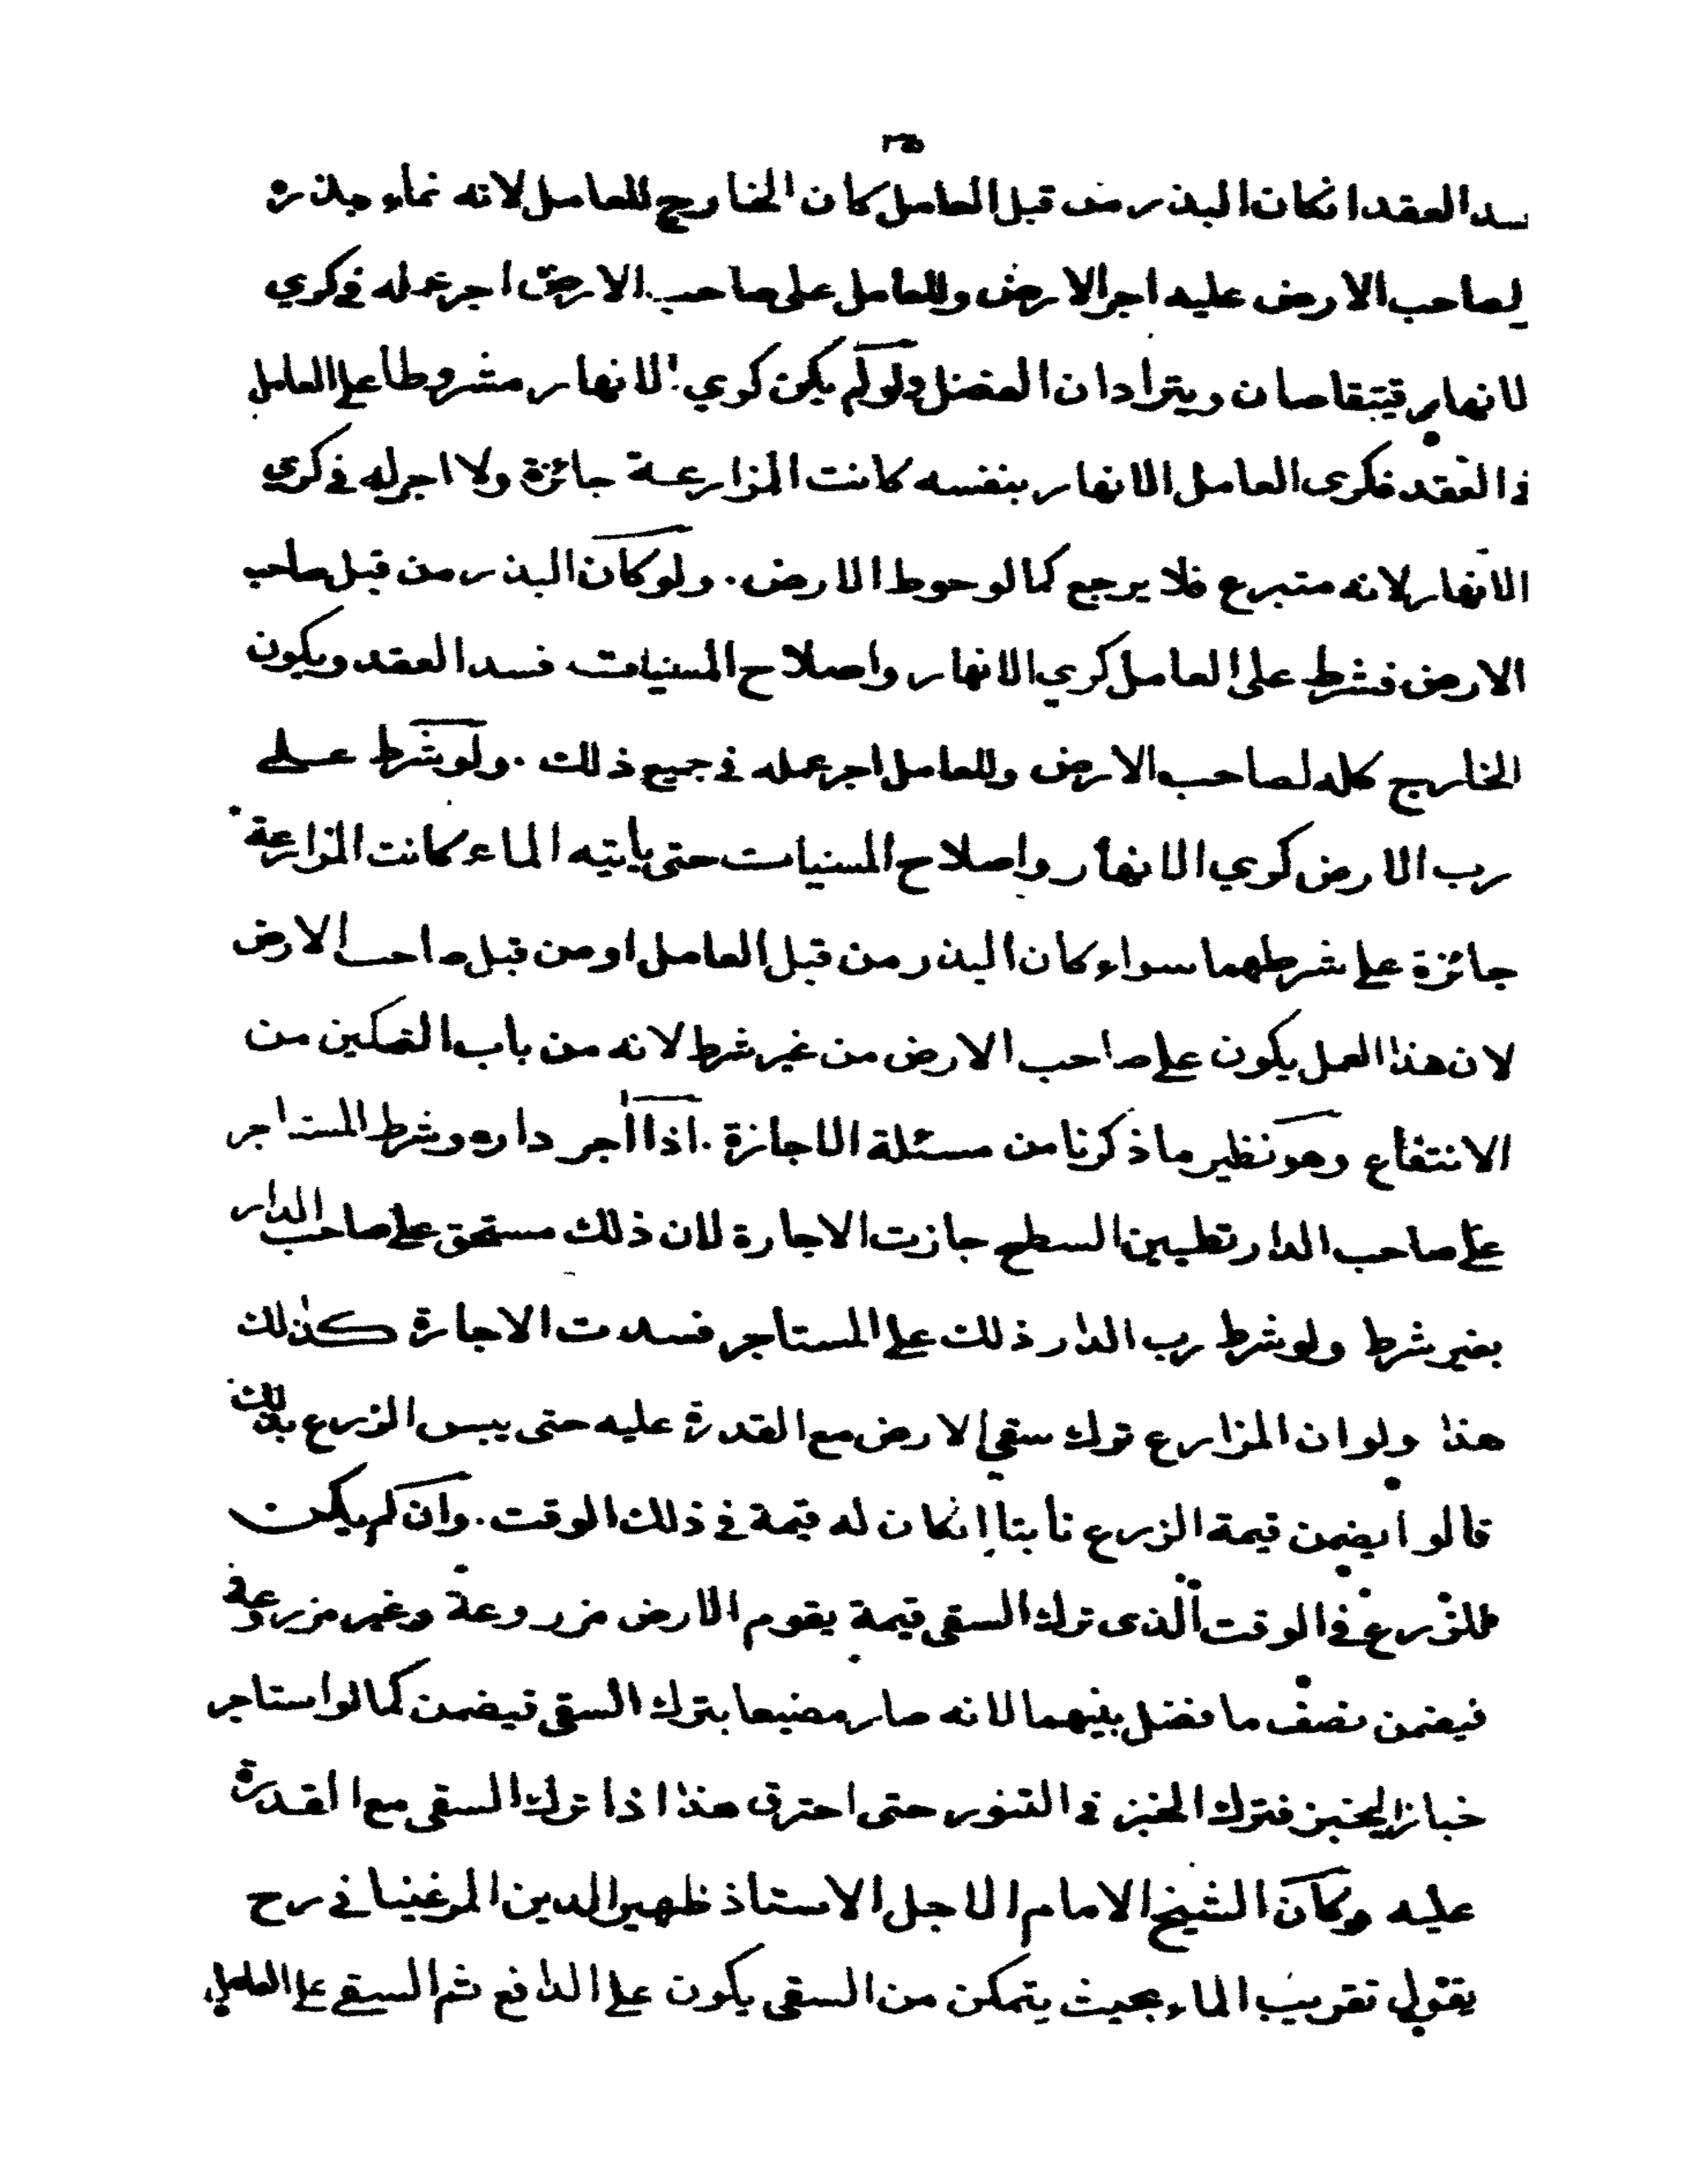 سد العقد انكان البذر من قبل العامل كان الخارج للعامل لانه نماء بذره
لصاحب الارض عليه اجر الارض وللعامل على صاحب الارض اجر عمله في كري
لانهار فيتقاصان ويترادان الفضل ولو لم يكن كري الانهار مشروطا على العامل
في العقد فكرى العامل الانهار بنفسه كانت المزارعة جائزة ولا اجر له في كري
الانهار لانه متبرع فلا يرجع كما لو حوط الارض. ولو كان البذر من قبل صاحب
الارض فشرط على العامل كري الانهار واصلاح المسنيات فسد العقد ويكون
الخارج كله لصاحب الارض وللعامل اجر عمله في جميع ذلك. ولو شرط على
رب الارض كري الانهار واصلاح المسنيات حتى يأيتيه الماء كانت المزارعة
جائزة على شرطهما سواء كان البذر من قبل العامل او من قبل صاحب الارض
لان هذا العمل يكون على صاحب الارض من غير شرط لانه من باب التمكين من
الانتفاع وهو نظير ما ذكرنا من مسئلة الاجازة. اذا اجر داره وشرط المستاجر
على صاحب الدار تطيين السطح جازت الاجارة لان ذلك مستحق على صاحب الدار
بغير شرط ولو شرط رب الدار ذلك على المستاجر فسدت الاجارة كذلك
هذا ولو ان المزارع ترك سقي الارض مع القدرة عليه حتى يبس الزرع بذلك
قالوا يضمن قيمة الزرع نابتا انكان له قيمة في ذلك الوقت. وان لم يكن
للزرع في الوقت الذى ترك السقى قيمة يقوم الارض مزروعة وغير مزروعة
فيضمن نصف ما فضل بينهما لانه صار مضيعا بترك السقى فيضمن كما لو استاجر
خبازا ليخبز فترك الخبز في التنور حتى احترق هذا اذا ترك السقى مع القدرة
عليه وكان الشيخ الامام الاجل الاستاذ ظهير الدين المرغيناني رح
يقول تقريب الماء بحيث يتمكن من السقى يكون على الدافع ثم السقي على العامل